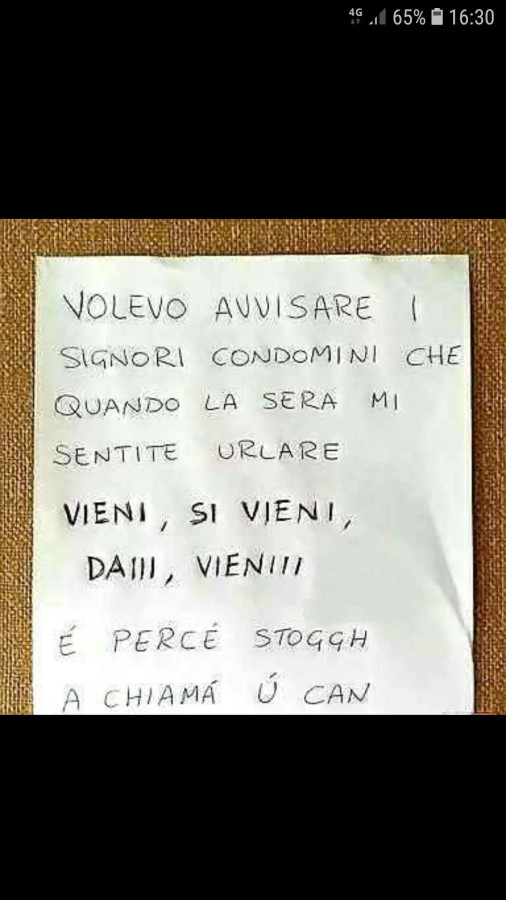 4G 65% 16:30
VOLEVO AVVISARE I
SIGNORI CONDOMINI CHE
QUANDO LA SERA MI
SENTITE URLARE
VIENI, SI VIENI,
DAIII, VIENIII
É PERCÉ STOGGH
A CHIAMÁ Ú CAN